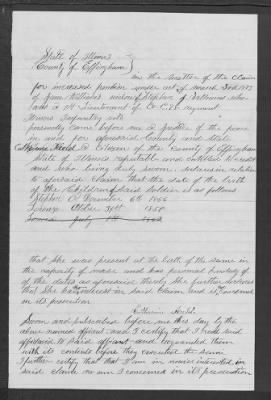 State of Illinois
County of Effingham
In the Matter of the Claim
for increased pension under act of March 3rd 1873
of Jane Williams widow of Stephen J. Williams who
was a 1st Lieutenant of Co. C, 98 regiment
Illinois Infantry vols
personally came before me a Justice of the peace
in and for aforesaid County and State
Catherine Heild a Citizen of the County of Effingham
State of Illinois reputable and entitled to credit
and who being duly sworn, declares in relation
to aforesaid claim that the date of the birth
of the Children of said Soldier is as follows
Stephen O December 6th 1855
October 30th 1858
July
that she was present at the birth of the same in
the capacity of and has personal knowledge of
of the dates as aforesaid thereby She further declares
that she has no interest in said Claim and is not concerned
in its prosecution
Catherine Heild
Sworn and subscribed before me this day by the
above named affiant and I certify that I read said
affidavit to said affiant and acquainted them
with its contents before they executed the same
I further certify that I am in nowise interested in
said claim nor am I concerned in its prosecution